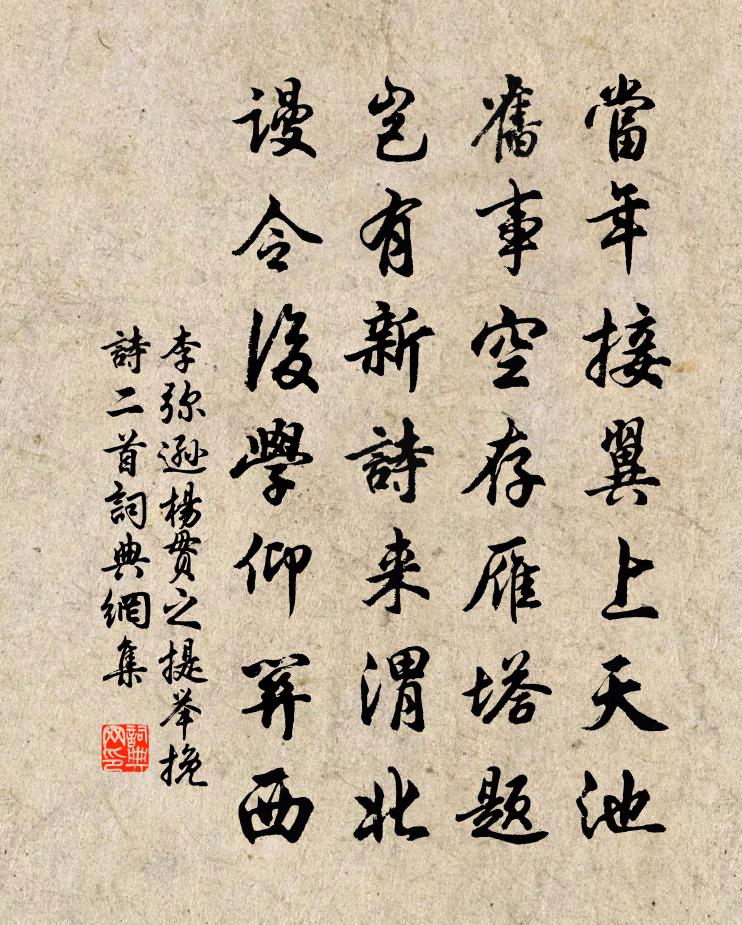 當年接翼上天池
舊事空存雁塔題
豈有新詩来渭北
謾令後學仰關西
李弥遜楊貫之提举挽
詩二首詞典網集
詞典网印